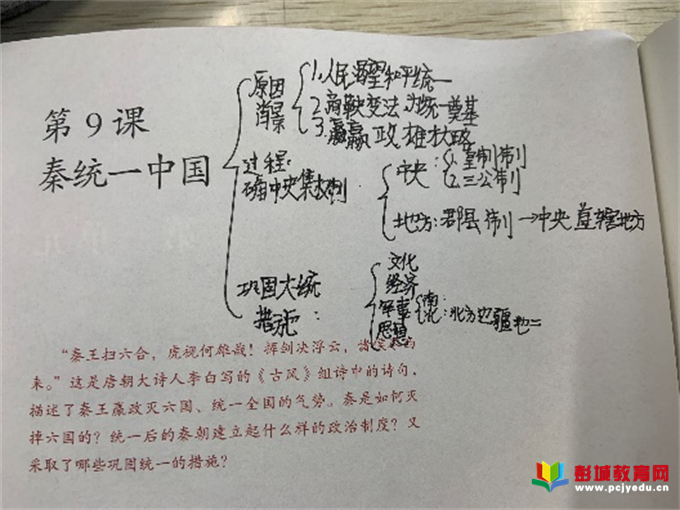 第9课
秦统一中国
原因
背景
1.人民渴望和平统一
2.商鞅变法为统一奠基
3.嬴政雄才大略
过程:
确中央集权制
中央:
1.皇制制
2.三公制
地方:郡县制→中央直辖地方
巩固大统
措施:
文化
经济
军事
思想
南
北:北方边疆地
“秦王扫六合,虎视何雄哉!挥剑决浮云,诸侯尽西
来。”这是唐朝大诗人李白写的《古风》组诗中的诗句,
描述了秦王嬴政灭六国、统一全国的气势。秦是如何灭
掉六国的?统一后的秦朝建立起什么样的政治制度?又
采取了哪些巩固统一的措施?
彭城教育网
www.pcjyedu.cn